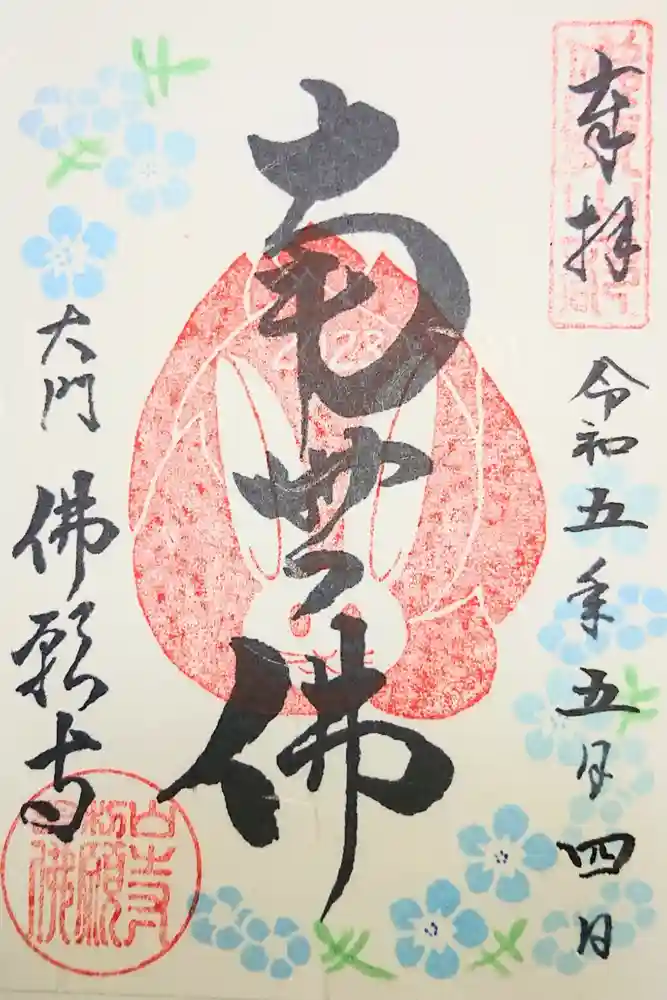 奉拝
令和五年五月四日
南無佛
2023
大門
佛願寺